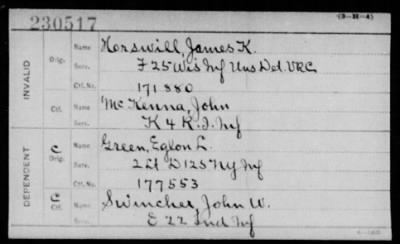 230517
(3-H-4)
INVALID
Orig.
Name Horswill, James K.
Serv. F 25 Wis Inf Uns Dcl. VRC
Ctf. No. 171 880
Ctf.
Name McKenna, John
K 4 R.I. Inf
DEPENDENT
C Orig.
Name Green, Eglon L.
Serv. 2 Lt D 125 NY Inf
Ctf. No. 177553
C Ctf.
Name Swincher, John W.
E 22 Ind Inf